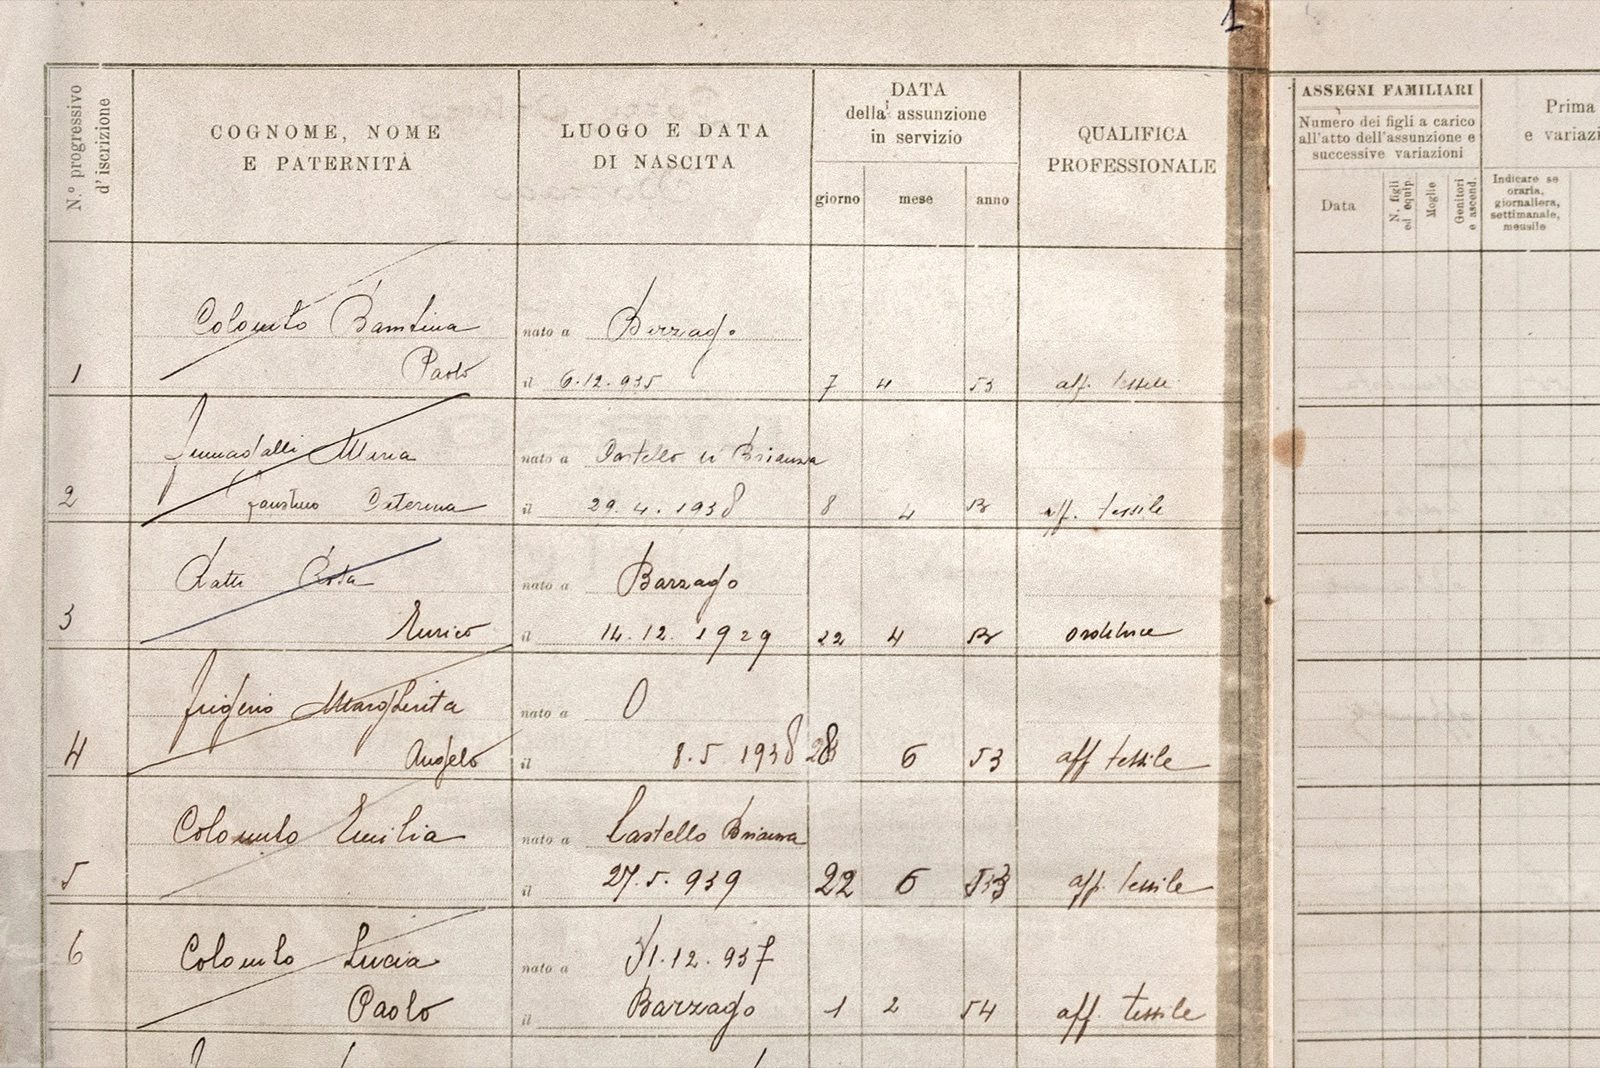 1
N.º progressivo
d'iscrizione
COGNOME, NOME
E PATERNITÀ
LUOGO E DATA
DI NASCITA
DATA
della assunzione
in servizio
giorno mese anno
QUALIFICA
PROFESSIONALE
ASSEGNI FAMILIARI
Numero dei figli a carico
all'atto dell'assunzione e
successive variazioni
Data
N. figli
ed equip.
Moglie
Genitori
e ascend.
Prima
e variazi
Indicare se
oraria,
giornaliera,
settimanale,
mensile
Colombo Bambina nato a Barzago
1 Paolo il 6.12.935 7 4 53 aff. tessile
Maria nato a Castello di Brianza
2 Faustino Caterina il 29.4.1938 8 4 53 aff. tessile
Ratti Rita nato a Barzago
3 Enrico il 14.12.1929 22 4 53 orditrice
Frigerio Margherita nato a
4 Angelo il 8.5.1938 6 53 aff tessile
Colombo Emilia nato a Castello Brianza
5 il 27.5.939 22 6 53 aff. tessile
6 Colombo Lucia nato a 31.12.937
Paolo il Barzago 1 2 54 aff. tessile